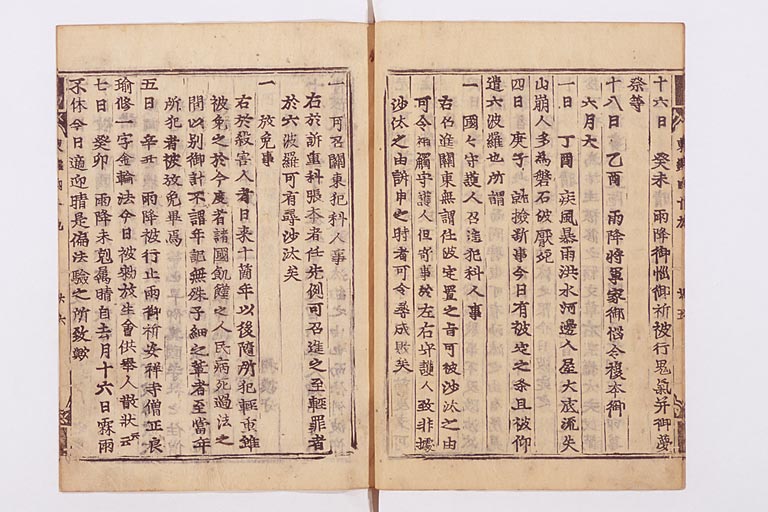 十六日　癸未晴雨降御惱御祈被行鬼氣并御夢
祭等
十八日　乙酉　雨降將軍家御惱令復本御
六月大
一日　丁酉　疾風暴雨洪水河邊人屋大底流失
山崩人多爲磐石被壓死
四日　庚子　就撿断事今日有被定之条且被仰
遣六波羅也所謂
一　國々守護人召進犯科人事
召進關東無謂任彼定置之旨可被沙汰之由
可令相觸守護人但寄事於左右守護人致非據
沙汰之由訴申之時者可令尋成敗矣
一　可召關東犯科人事
右於訴重科張本者任先例可召進之至輕罪者
於六波羅可有尋沙汰矣
一　放免事
右於殺害人者日来十箇年以後随所犯輕重雖
被免之於今度者諸國飢饉之人民病死過法之
間以別御計不謂年記無殊子細之輩者至當年
所犯者被放免畢焉
五日　辛丑　雨降被行止雨御祈安祥寺僧正良
瑜修一字金輪法今日被勤放生會供奉人散状云々
七日　癸卯　雨降未剋属晴自去月十六日霖雨
不休今日適迎晴是偏法驗之所致歟